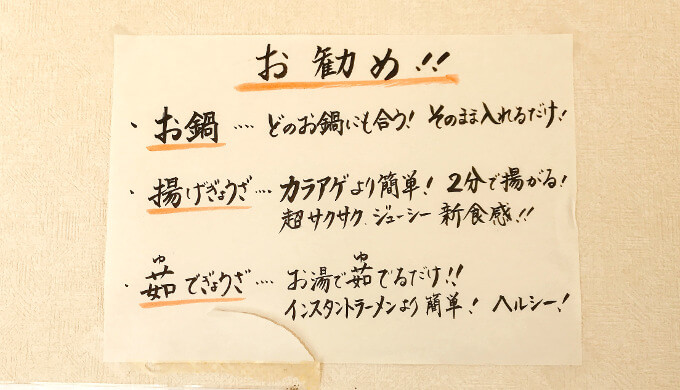 お勧め!!
・お鍋‥‥どのお鍋にも合う! そのまま入れるだけ!
・揚げぎょうざ‥‥カラアゲより簡単! 2分で揚がる!
超サクサク、ジューシー新食感!!
・茹(ゆ)でぎょうざ‥‥お湯で茹(ゆ)でるだけ!!
インスタントラーメンより簡単! ヘルシー!